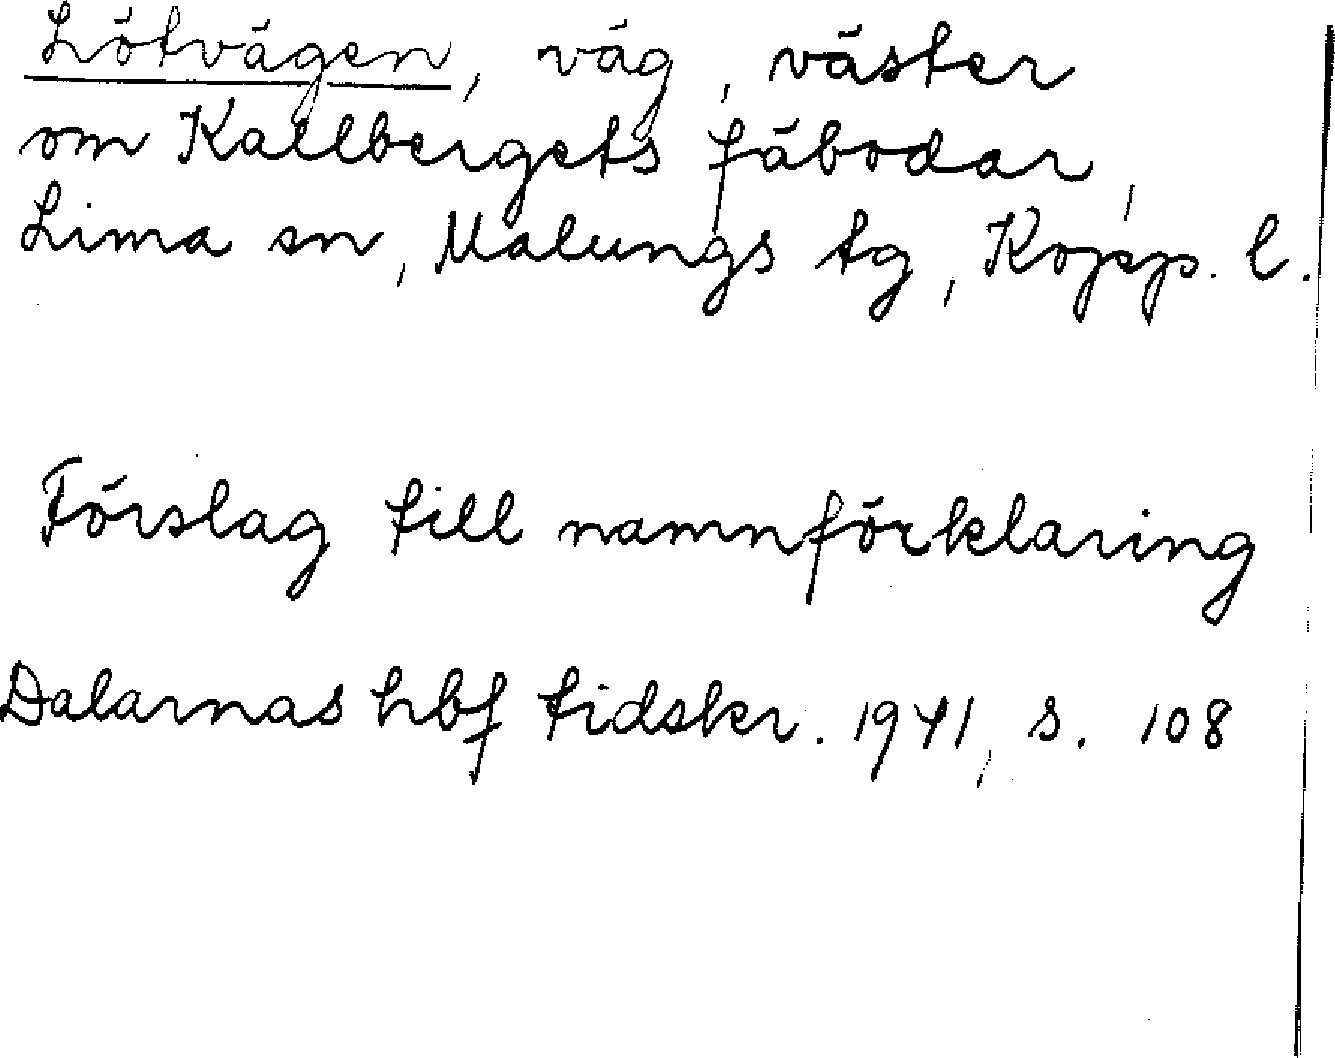 Lötvägen, väg, väster
om Kallbergets fäbodar,
Lima sn, Malungs tg, Kopp. l.
Förslag till namnförklaring
Dalarnas hbf tidskr. 1941, s. 108